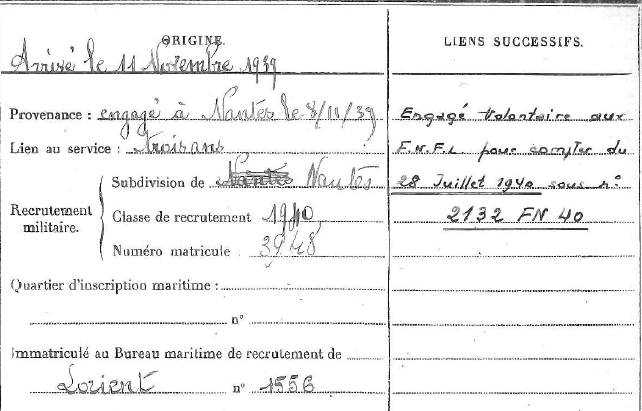 ORIGINE.
Arrivé le 11 Novembre 1939
Provenance : engagé à Nantes le 8/11/39
Lien au service : trois ans
Recrutement militaire.
Subdivision de Nantes Nantes
Classe de recrutement 1940
Numéro matricule : 3948
Quartier d'inscription maritime :
n°
Immatriculé au Bureau maritime de recrutement de
Lorient n° 1556
LIENS SUCCESSIFS.
Engagé Volontaire aux
F.N.F.L pour compter du
28 Juillet 1940 sous n°
2132 FN 40